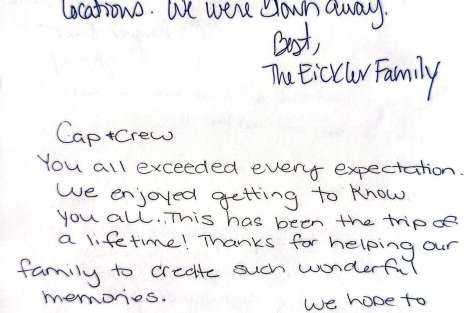 locations. We were blown away.
Best,
The Eickler Family
Cap + Crew
You all exceeded every expectation.
We enjoyed getting to know
you all. This has been the trip of
a lifetime! Thanks for helping our
family to create such wonderful
memories.
We hope to